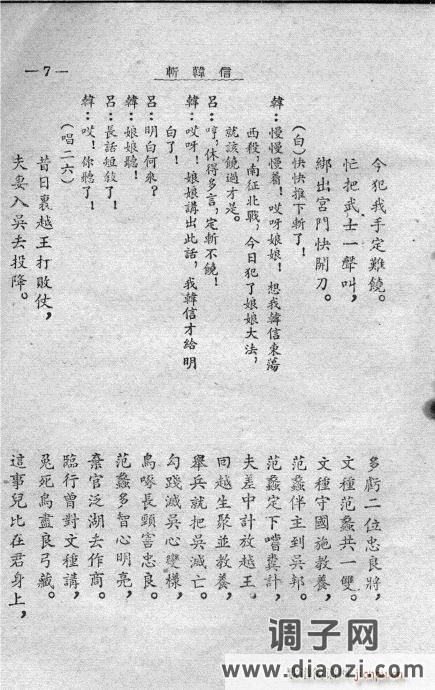 斬韓信
—7—
今犯我手定難饒。
忙把武士一聲叫，
綁出宮門快開刀。
（白）快快推下斬了！
韓：慢慢慢着！哎呀娘娘！想我韓信東蕩
西殺，南征北戰，今日犯了娘娘大法，
就該饒過才是。
呂：哼，休得多言，定斬不饒！
韓：哎呀！娘娘講出此話，我韓信才給明
白了！
呂：明白何來？
韓：娘娘聽！
呂：長話短敘了！
韓：哎！你聽了！
（唱二六）
昔日裏越王打敗仗，
夫妻入吳去投降。
多虧二位忠良將，
文種范蠡共一雙。
文種守國施教養，
范蠡伴主到吳邦。
范蠡定下嚐糞計，
夫差中計放越王。
回越生聚並教養，
舉兵就把吳滅亡。
勾踐滅吳心變樣，
鳥喙長頸害忠良。
范蠡多智心明亮，
棄官泛湖去作商。
臨行曾對文種講，
兔死鳥盡良弓藏。
這事兒比在君身上，
调子网
www.diaozi.com